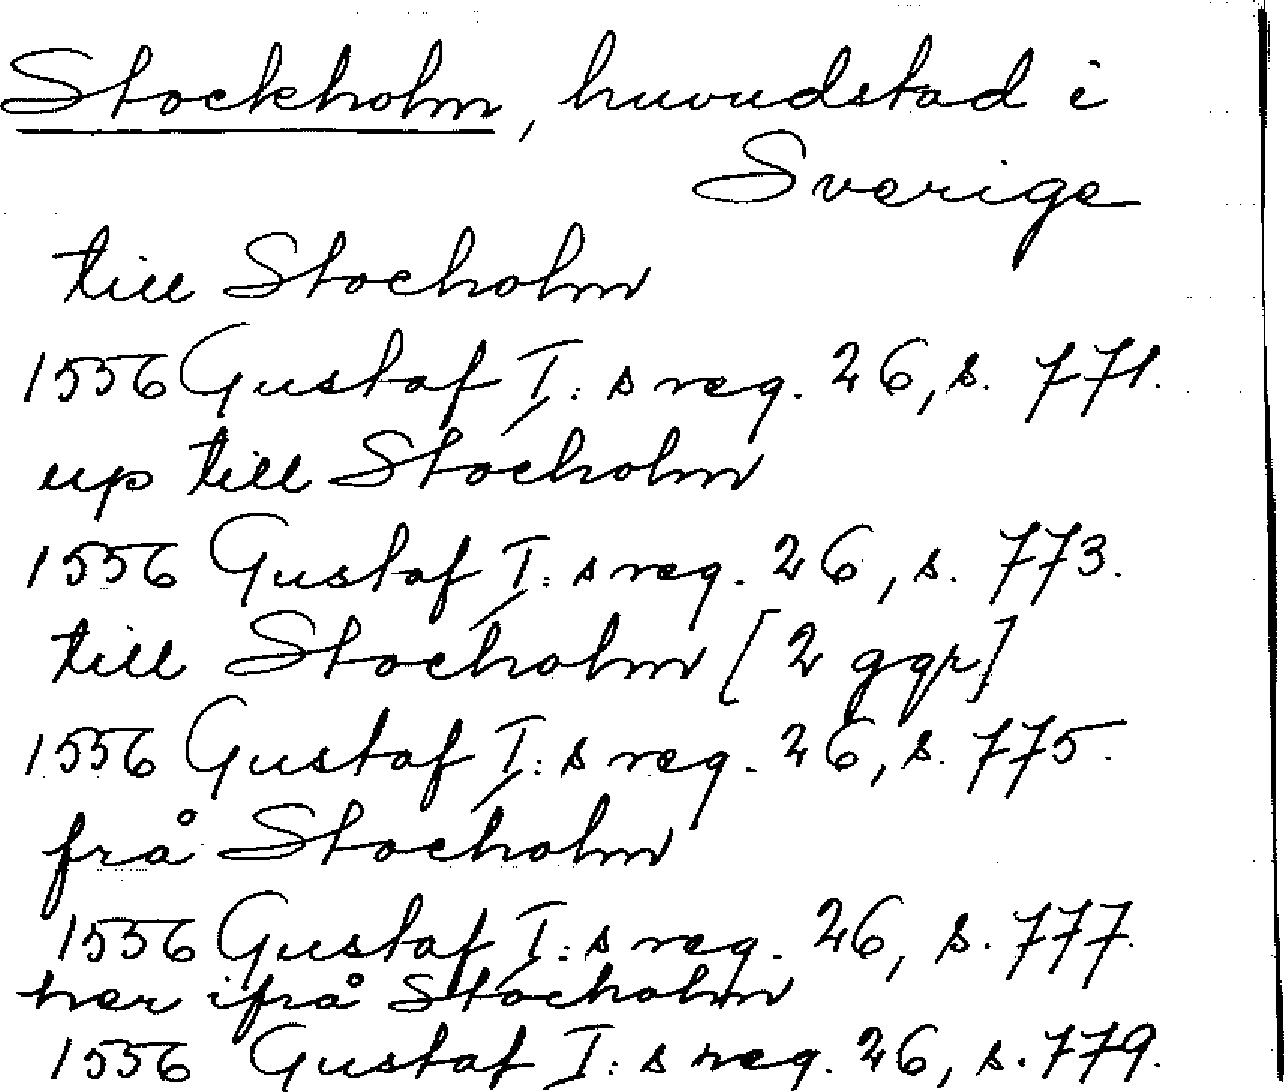 Stockholm, huvudstad i
Sverige
till Stocholm
1556 Gustaf I:s reg. 26, s. 771.
up till Stocholm
1556 Gustaf I:s reg. 26, s. 773.
till Stocholm [2 ggr]
1556 Gustaf I:s reg. 26, s. 775.
frå Stocholm
1556 Gustaf I:s reg. 26, s. 777.
her ifrå Stocholm
1556 Gustaf I:s reg. 26, s. 779.